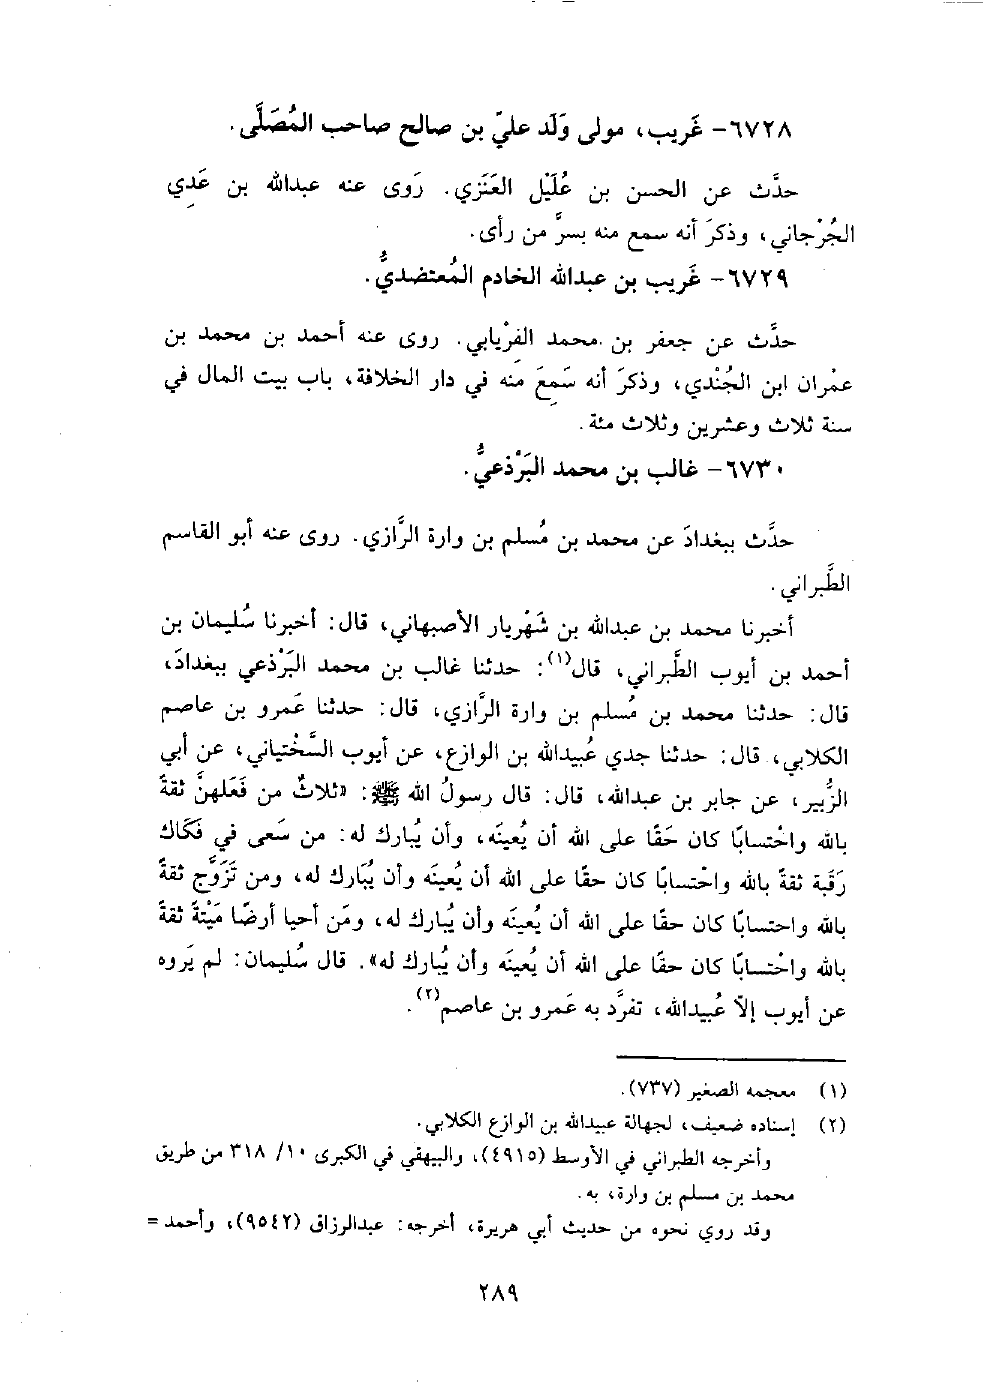 ٦٧٢٨- غَريب، مولى وَلَد عليّ بن صالح صاحب المُصَلَّى.
حدَّث عن الحسن بن عُلَيْل العَنَزي. رَوى عنه عبدالله بن عَدِي
الجُرْجاني، وذكرَ أنه سمع منه بسرَّ من رأى.
٦٧٢٩- غَريب بن عبدالله الخادم المُعتضديُّ.
حدَّث عن جعفر بن محمد الفِرْيابي. روى عنه أحمد بن محمد بن
عمْران ابن الجُنْدي، وذكرَ أنه سَمِعَ منه في دار الخلافة، باب بيت المال في
سنة ثلاث وعشرين وثلاث مئة.
٦٧٣٠- غالب بن محمد البَرْذعيُّ.
حدَّث ببغدادَ عن محمد بن مُسلم بن وارة الرَّازي. روى عنه أبو القاسم
الطَّبراني.
أخبرنا محمد بن عبدالله بن شَهْريار الأصبهاني، قال: أخبرنا سُليمان بن
أحمد بن أيوب الطَّبراني، قال(١): حدثنا غالب بن محمد البَرْذعي ببغدادَ،
قال: حدثنا محمد بن مُسلم بن وارة الرَّازي، قال: حدثنا عَمرو بن عاصم
الكلابي، قال: حدثنا جدي عُبيدالله بن الوازع، عن أيوب السَّخْتياني، عن أبي
الزُّبير، عن جابر بن عبدالله، قال: قال رسولُ الله ﷺ: «ثلاثٌ من فَعَلهنَّ ثقةً
بالله واحْتسابًا كان حَقًا على الله أن يُعينَه، وأن يُبارك له: من سَعى في فَكَاك
رَقَبة ثقةً بالله واحْتسابًا كان حقًا على الله أن يُعينَه وأن يُبَارك له، ومن تَزَوَّج ثقةً
بالله واحتسابًا كان حقًا على الله أن يُعينَه وأن يُبارك له، ومَن أحيا أرضًا مَيْتةً ثقةً
بالله واحْتسابًا كان حقًا على الله أن يُعينَه وأن يُبارك له». قال سُليمان: لم يَروه
عن أيوب إلاّ عُبيدالله، تفرَّد به عَمرو بن عاصم(٢).
(١) معجمه الصغير (٧٣٧).
(٢) إسناده ضعيف، لجهالة عبيدالله بن الوازع الكلابي.
وأخرجه الطبراني في الأوسط (٤٩١٥)، والبيهقي في الكبرى ١٠/ ٣١٨ من طريق
محمد بن مسلم بن وارة، به.
وقد روي نحوه من حديث أبي هريرة، أخرجه: عبدالرزاق (٩٥٤٢)، وأحمد =
٢٨٩